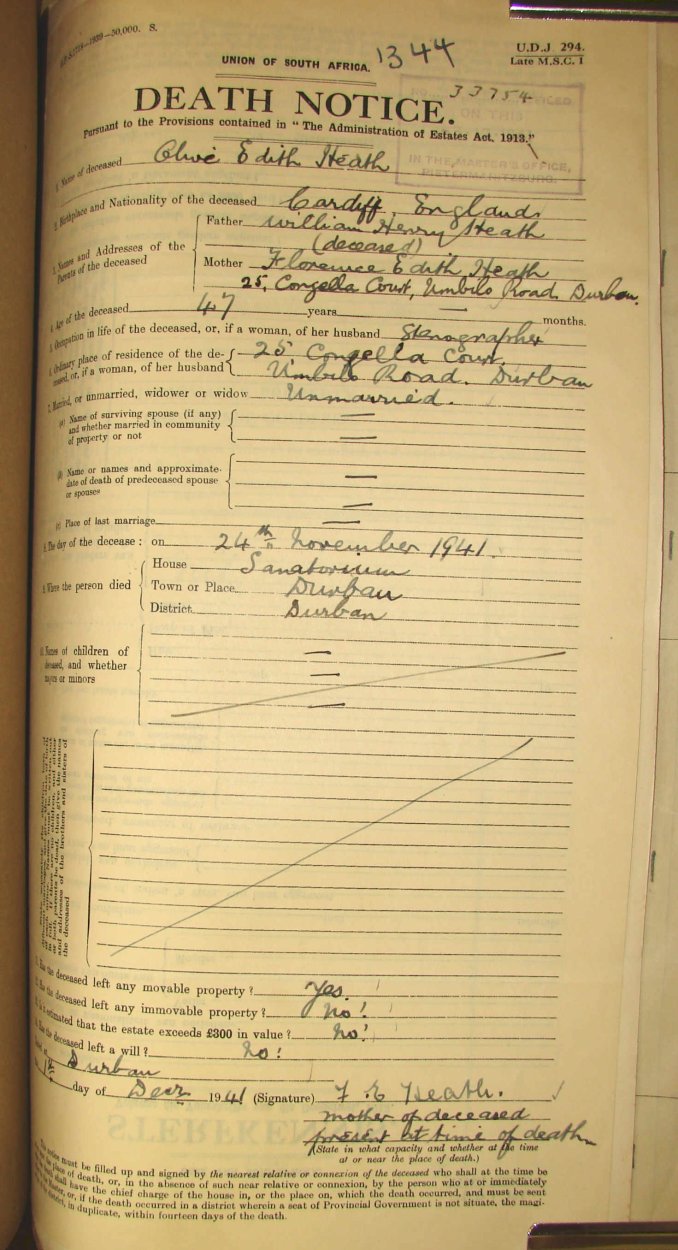 1718—1939—50,000. S.
1344
U.D.J. 294.
Late M.S.C. 1
UNION OF SOUTH AFRICA.
33754
DEATH NOTICE.
ON THIS
Pursuant to the Provisions contained in "The Administration of Estates Act, 1913."
IN THE MASTER'S OFFICE,
PIETERMARITZBURG.
1. Name of deceased Olive Edith Heath
2. Birthplace and Nationality of the deceased Cardiff, England.
3. Names and Addresses of the Parents of the deceased
Father William Henry Heath
(deceased)
Mother Florence Edith Heath
25, Congella Court, Umbilo Road, Durban.
4. Age of the deceased 47 years — months.
5. Occupation in life of the deceased, or, if a woman, of her husband Stenographer
6. Ordinary place of residence of the de- 25, Congella Court,
ceased, or, if a woman, of her husband Umbilo Road. Durban
7. Married, or unmarried, widower or widow Unmarried.
(a) Name of surviving spouse (if any) —
and whether married in community
of property or not —
(b) Name or names and approximate
date of death of predeceased spouse —
or spouses —
(c) Place of last marriage —
8. The day of the decease: on 24th November 1941.
9. Where the person died
House Sanatorium
Town or Place Durban
District Durban
10. Names of children of
deceased, and whether —
majors or minors —
—
and addresses of the brothers and sisters of
the deceased
Has the deceased left any movable property? Yes.
Has the deceased left any immovable property? No!
Is it estimated that the estate exceeds £300 in value? No!
Has the deceased left a will? No!
Dated at Durban
day of Decr 1941 (Signature) F. E. Heath.
mother of deceased
present at time of death
(State in what capacity and whether at the time
at or near the place of death.)
notice must be filled up and signed by the nearest relative or connexion of the deceased who shall at the time be
place of death, or, in the absence of such near relative or connexion, by the person who at or immediately
shall have the chief charge of the house in, or the place on, which the death occurred, and must be sent
or, if the death occurred in a district wherein a seat of Provincial Government is not situate, the magi-
in duplicate, within fourteen days of the death.